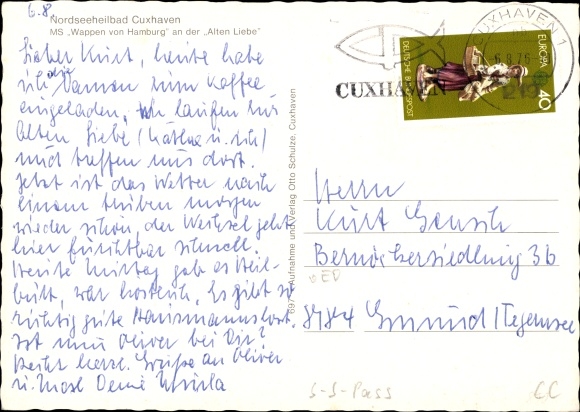 6.8.
Nordseeheilbad Cuxhaven
MS „Wappen von Hamburg" an der „Alten Liebe"
Lieber Kurt, heute habe
ich die Damen zum Kaffee
eingeladen, wir laufen zur
Alten Liebe (Käthe u. ich)
und treffen uns dort.
Jetzt ist das Wetter nach
einem trüben morgen
wieder schön, der Wechsel geht
hier furchtbar schnell.
Heute Mittag gab es Heil-
butt, war köstlich. Es gibt so
richtig gute Hausmannskost.
Ist nun Oliver bei Dir?
Recht herzl. Grüße an Oliver
u. Mosl Deine Ursula
697 Aufnahme und Verlag Otto Schulze, Cuxhaven
CUXHAVEN
CUXHAVEN 1
6.8.76
219
DEUTSCHE BUNDESPOST
EUROPA
40
Herrn
Kurt
Bernöckersiedlung 3b
8184 Gmund/Tegernsee
S-S-Pass
CC